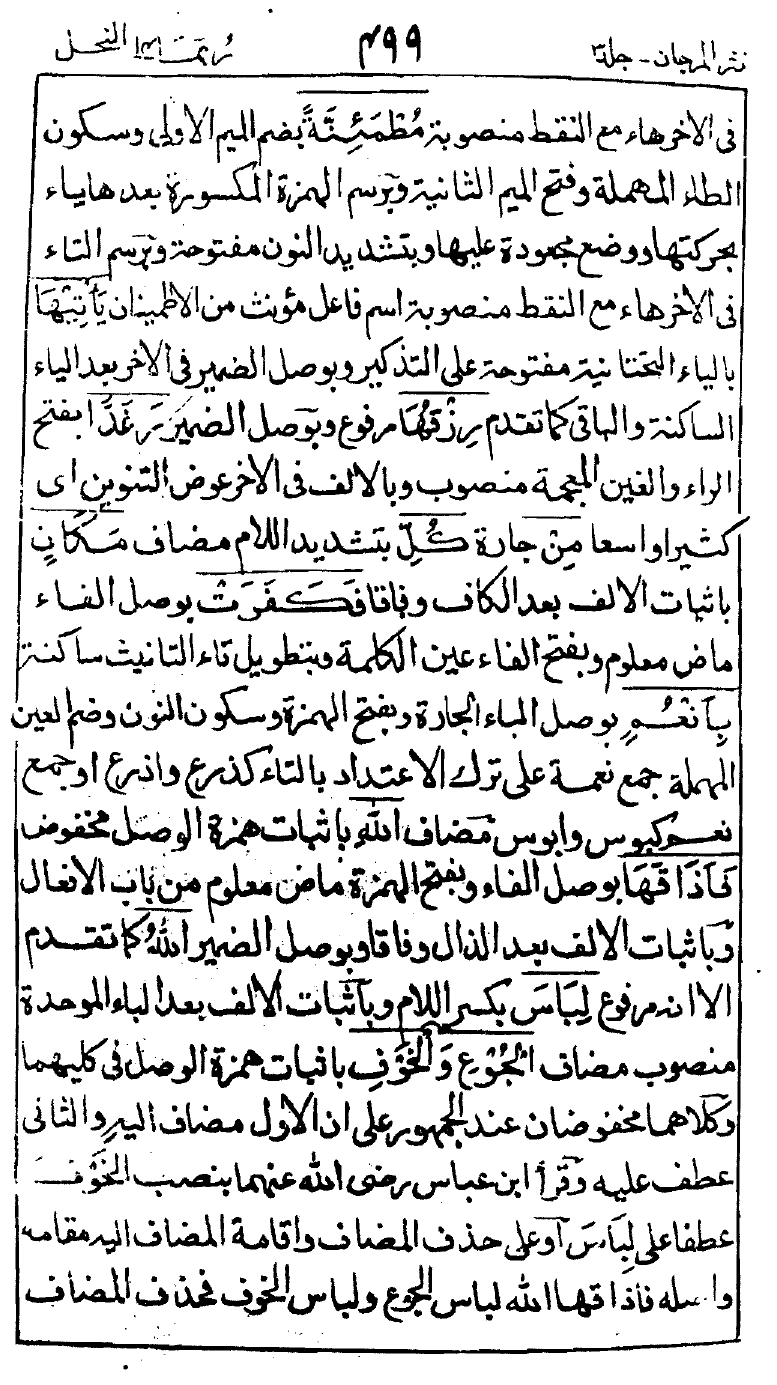 نثر المرجان - جلد ٣
٤٩٩
ربما ١٤ النحل
فى الاخرهاء مع النقط منصوبة مُطْمَئِنَّةً بضم الميم الاولى وسكون
الطاء المهملة وفتح الميم الثانية وبرسم الهمزة المكسورة بعدها ياء
بحركتها ووضع مجعودة عليها وبتشديد النون مفتوحة وبرسم التاء
فى الاخرهاء مع النقط منصوبة اسم فاعل مؤنث من الاطمينان يَأْتِيْهَا
بالياء التحتانية مفتوحة على التذكير وبوصل الضمير فى الاخر بعد الياء
الساكنة والباقى كما تقدم رِزْقُهَا مرفوع وبوصل الضمير رَغَدًا بفتح
الراء والغين المعجمة منصوب وبالالف فى الاخر عوض التنوين اى
كثيرا واسعا مِنْ جارة كُلِّ بتشديد اللام مضاف مَكَانٍ
باثبات الالف بعد الكاف وفاقا فَكَفَرَتْ بوصل الفاء
ماض معلوم وبفتح الفاء عين الكلمة وبتطويل تاء التانيث ساكنة
بِأَنْعُمِ بوصل الباء الجارة وبفتح الهمزة وسكون النون وضم العين
المهملة جمع نعمة على ترك الاعتداد بالتاء كذرع واذرع او جمع
نعم كبوس وابوس مضاف اللهِ باثبات همزة الوصل مخفوض
فَأَذَاقَهَا بوصل الفاء وبفتح الهمزة ماض معلوم من باب الافعال
وباثبات الالف بعد الذال وفاقا وبوصل الضمير اللهُ كما تقدم
الا انه مرفوع لِبَاسَ بكسر اللام وباثبات الالف بعد الباء الموحدة
منصوب مضاف الْجُوْعِ وَالْخَوْفِ باثبات همزة الوصل فى كليهما
وكلاهما مخفوضان عند الجمهور على ان الاول مضاف اليه والثانى
عطف عليه وقرأ ابن عباس رضى الله عنهما بنصب الخَوْفَ
عطفا على لِبَاسَ او على حذف المضاف واقامة المضاف اليه مقامه
واصله فاذاقها الله لباس الجوع ولباس الخوف فحذف المضاف